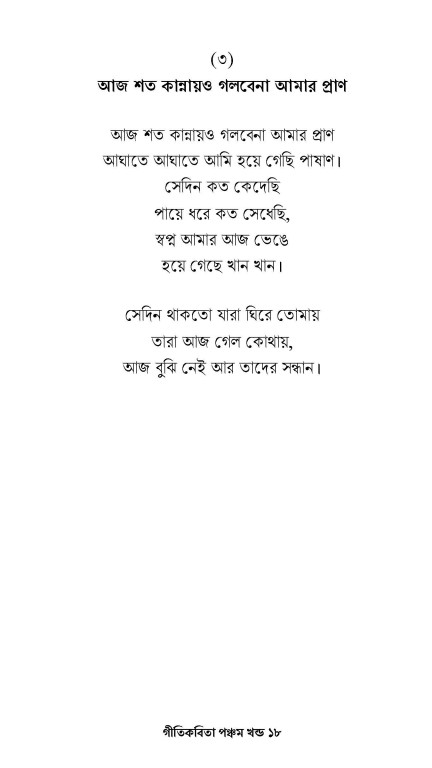 (৩)
আজ শত কান্নায়ও গলবেনা আমার প্রাণ
আজ শত কান্নায়ও গলবেনা আমার প্রাণ
আঘাতে আঘাতে আমি হয়ে গেছি পাষাণ।
সেদিন কত কেদেছি
পায়ে ধরে কত সেধেছি,
স্বপ্ন আমার আজ ভেঙে
হয়ে গেছে খান খান।
সেদিন থাকতো যারা ঘিরে তোমায়
তারা আজ গেল কোথায়,
আজ বুঝি নেই আর তাদের সন্ধান।
গীতিকবিতা পঞ্চম খন্ড ১৮